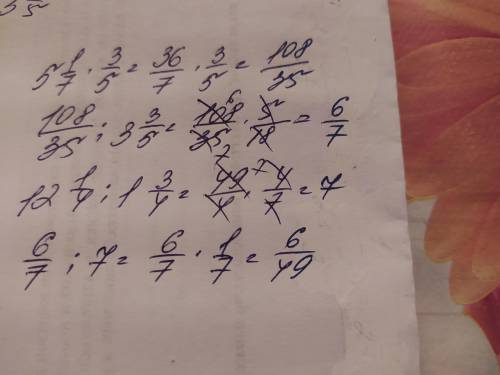 5 1/7 · 3/5 = 36/7 · 3/5 = 108/35
108/35 : 3 3/5 = 108/35 6 7 · 5/18 = 6/7
12 1/4 : 1 3/4 = 49/4 7 · 4/7 = 7
6/7 : 7 = 6/7 · 1/7 = 6/49